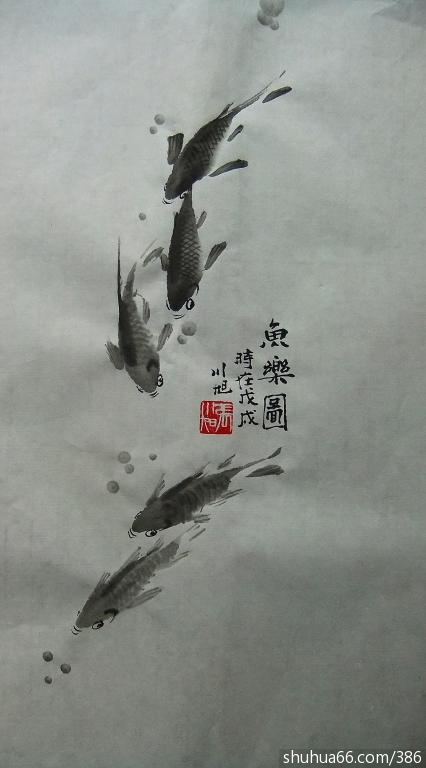 魚樂圖
時在戊戌
川旭
張旭川
shuhua66.com/386